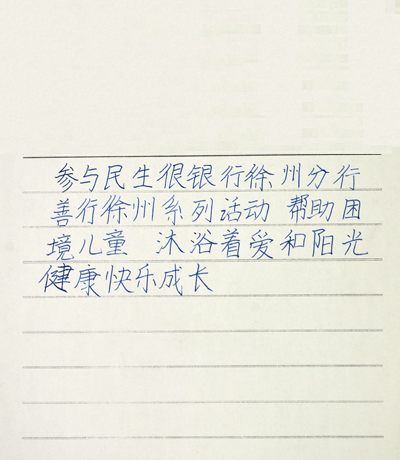 参与民生很银行徐州分行
善行徐州系列活动 帮助困
境儿童 沐浴着爱和阳光
健康快乐成长